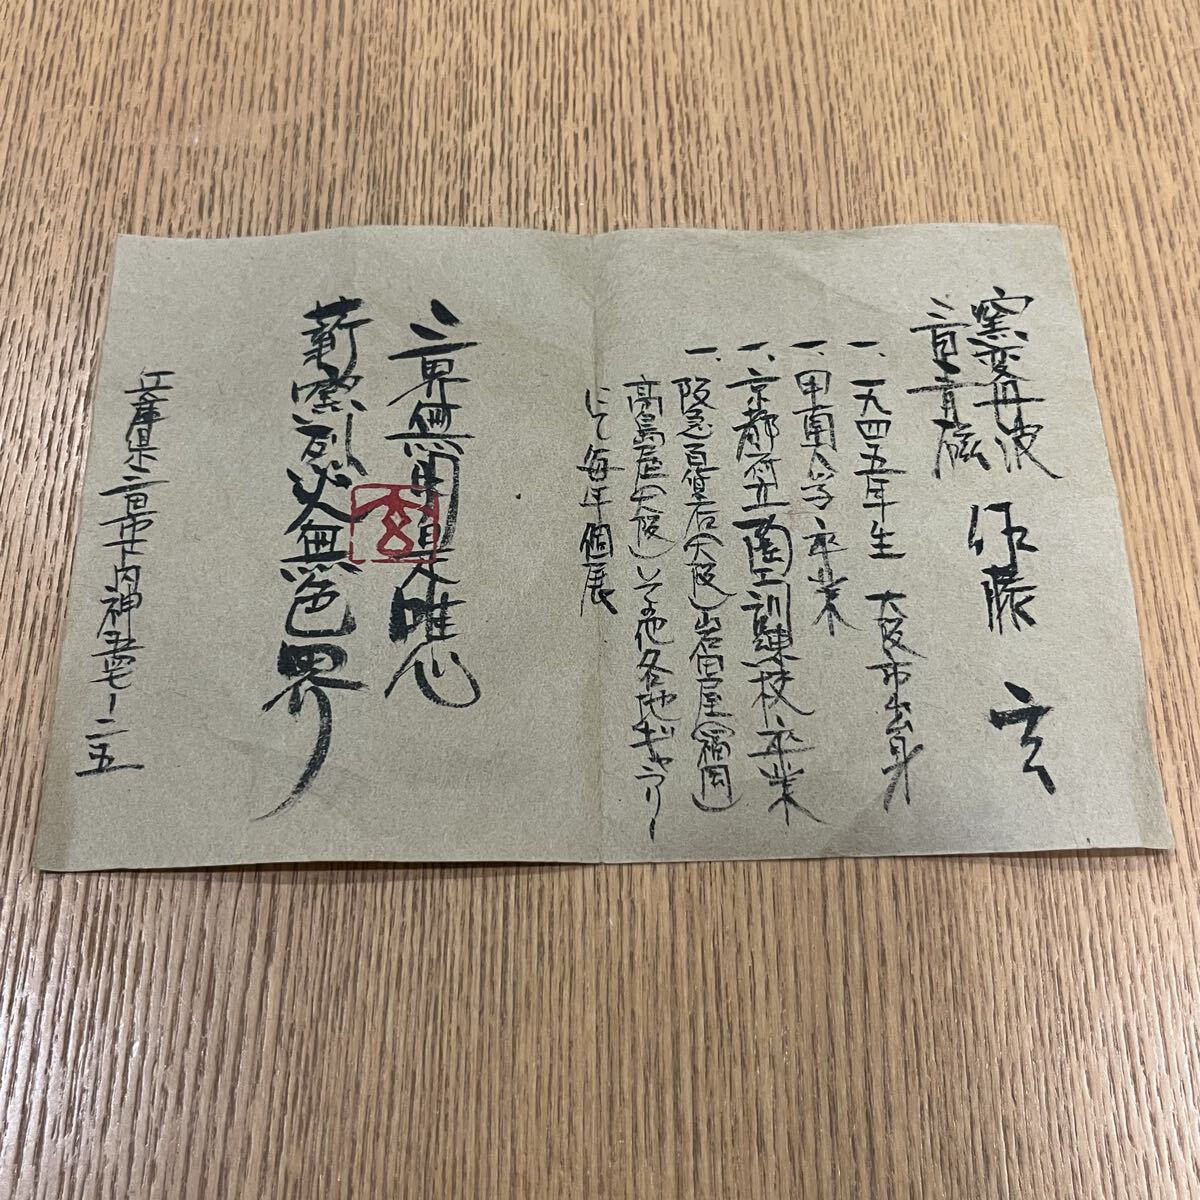 窯変丹波
三田青磁
藤 玄
一、一九四五年生 大阪市出身
一、甲南大学卒業
一、京都府立陶工訓練校卒業
一、阪急百貨店(大阪)岩田屋(福岡)
高島屋(大阪)その他各地ギャラリー
にて毎年個展
三界無是唯心
薪窯烈火無色界
玄
兵庫県三田市下内神五四七ー二五